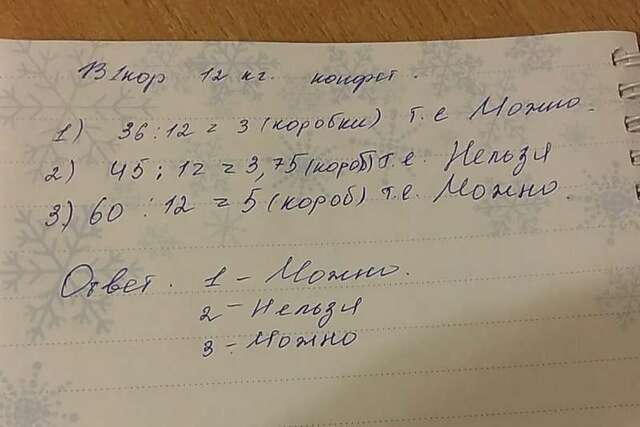 В 1 кор 12 кг. конфет.
1) 36 : 12 = 3 (коробки) т.е Можно.
2) 45 : 12 = 3,75 (короб) т.е. Нельзя
3) 60 : 12 = 5 (короб) т.е. Можно.
Ответ. 1 - Можно.
2 - Нельзя
3 - Можно